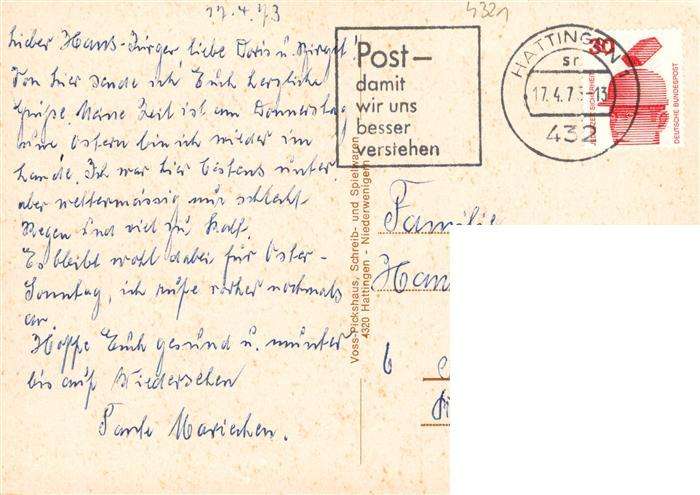 17.4.73
4321
Lieber Hans-Jürger liebe Doris u. Birgit!
Von hier sende ich Euch herzliche
Grüße. Meine Zeit ist am Donnerstag
um. Ostern bin ich wieder im
Lande. Ich war hier bestens unter,
aber wettermässig nur schlecht
Regen und viel zu kalt.
Es bleibt wohl dabei für Oster-
Sonntag, ich rufe vorher nochmals
an.
Hoffe Euch gesund u. munter
bis auf Wiedersehen
Tante Mariechen.
Post-
damit
wir uns
besser
verstehen
HATTINGEN
sr
17.4.73-13
432
30
DEUTSCHE BUNDESPOST
Voss-Pickshaus, Schreib- und Spielwaren
4320 Hattingen - Niederwenigern
Familie
Han
6